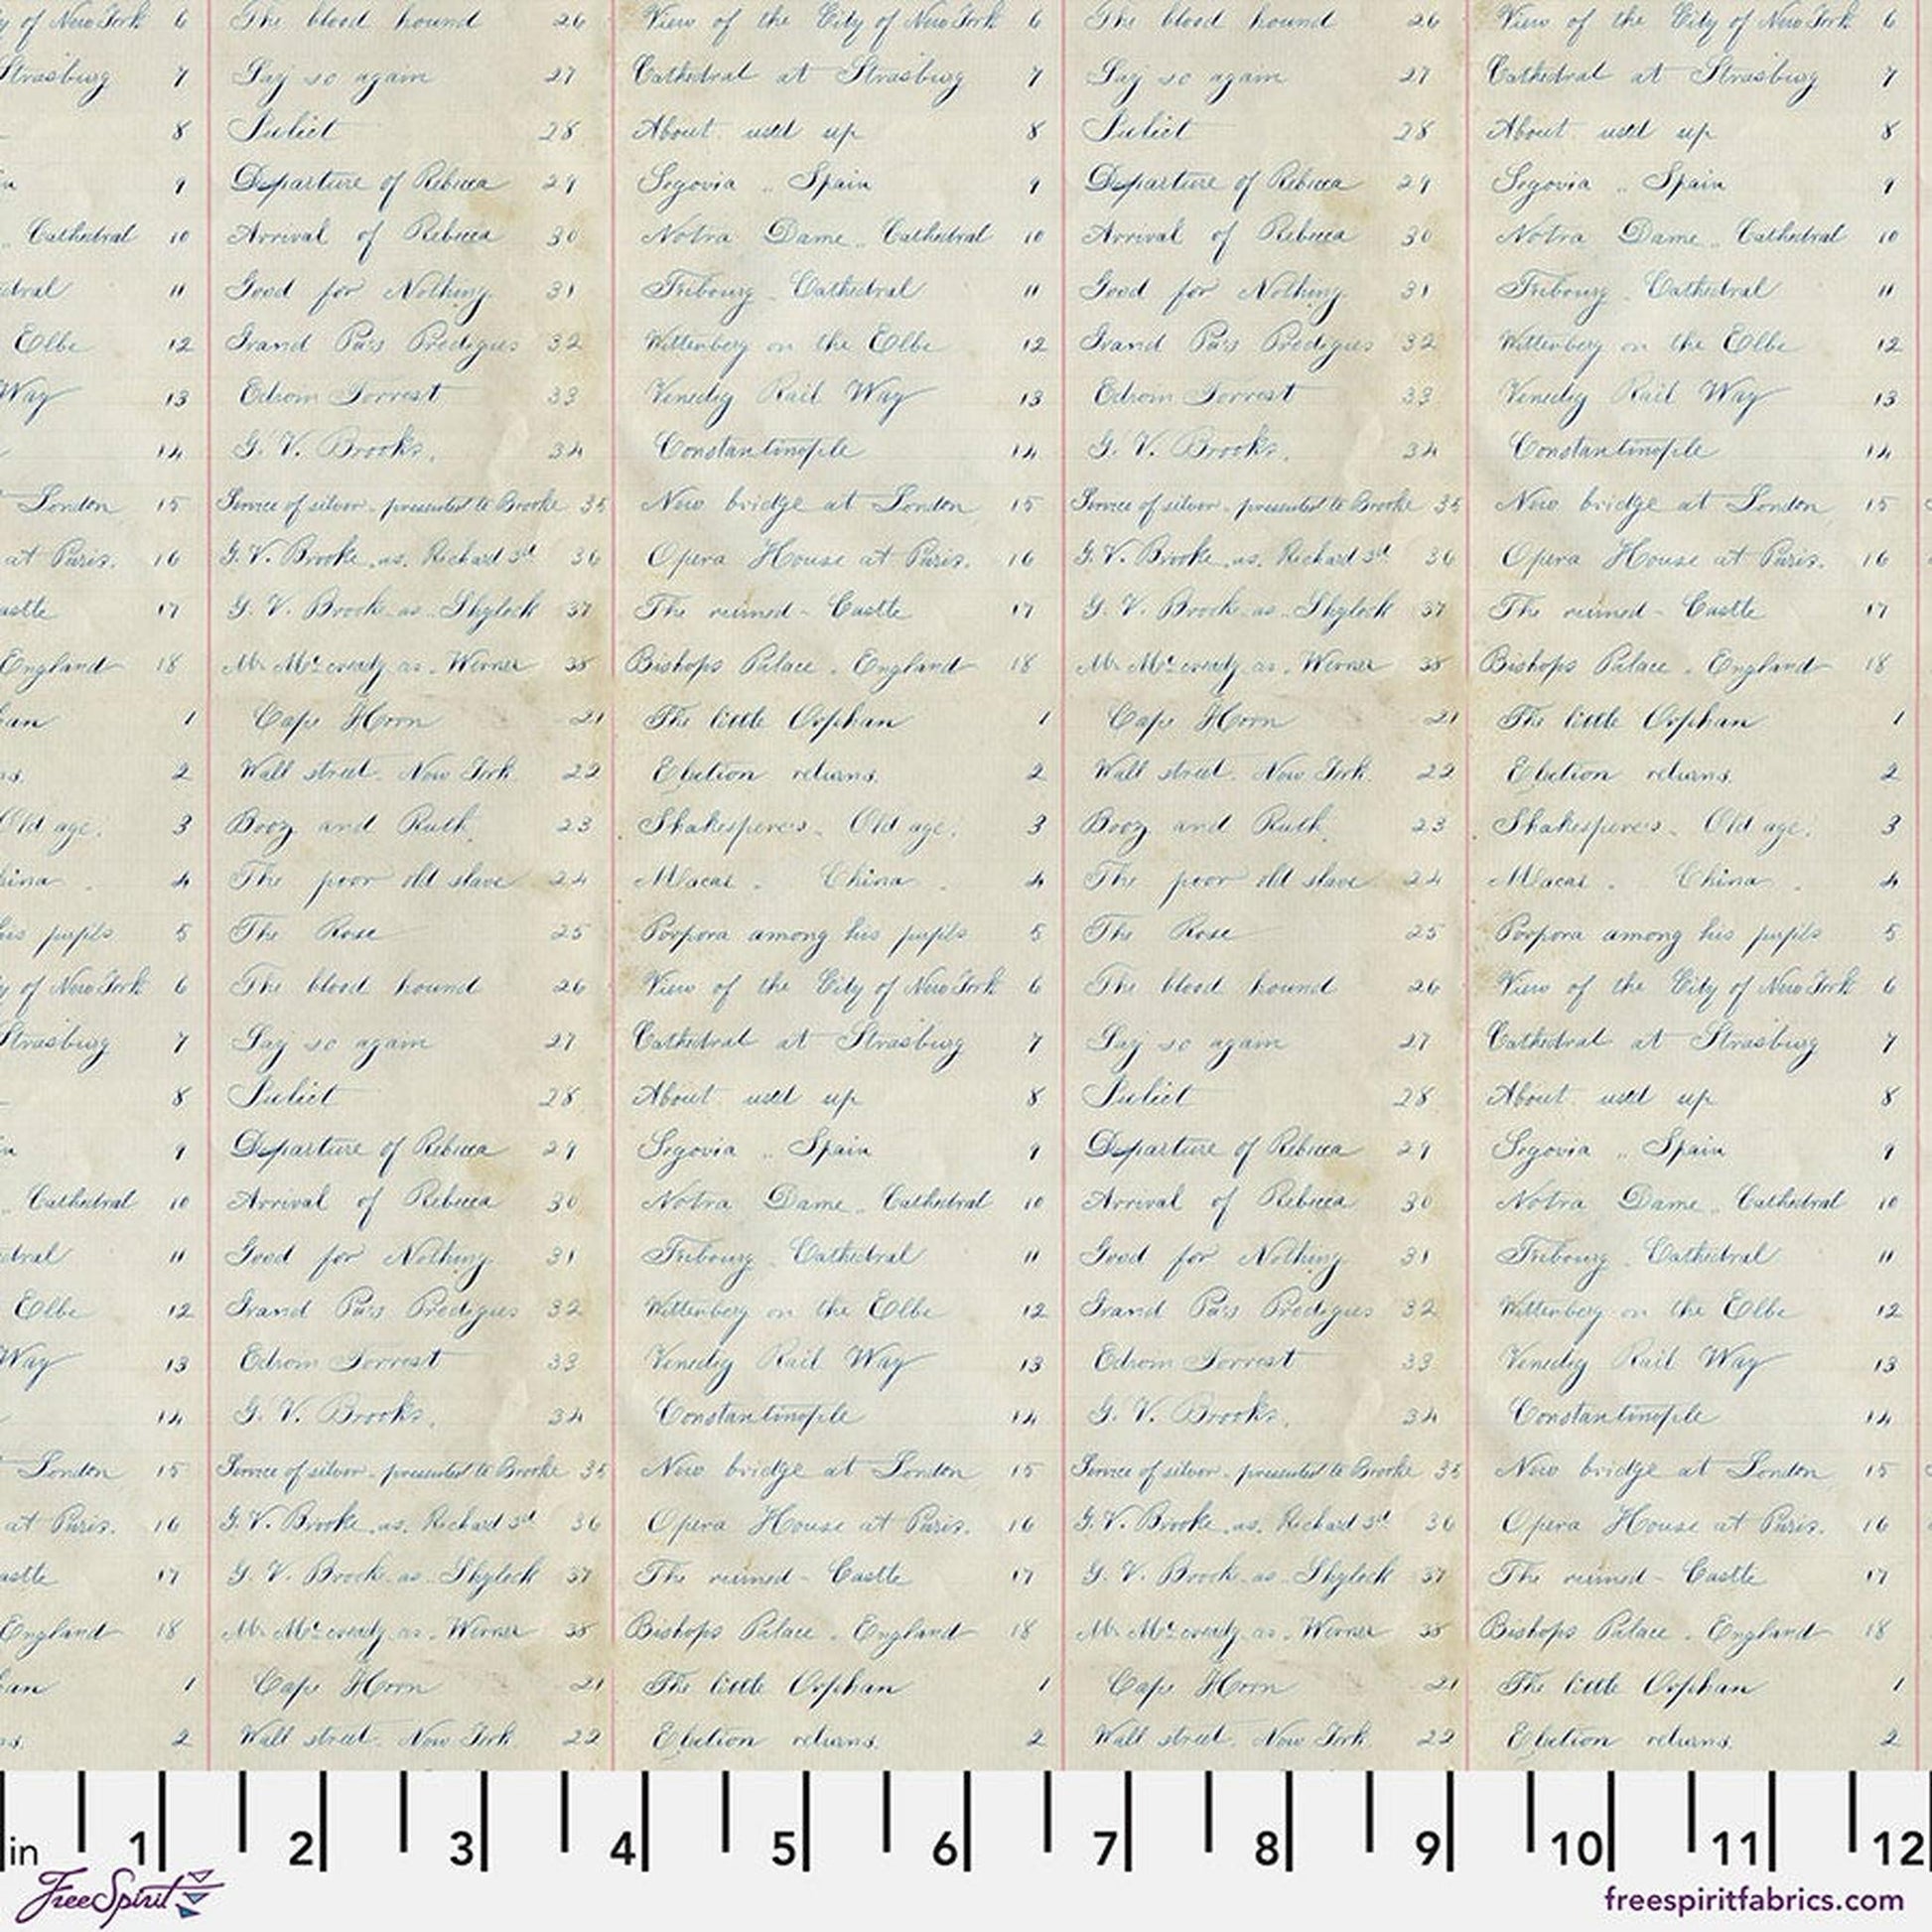 of New York 6 The blood hound 26 View of the City of New York 6 The blood hound 26 View of the City of New York 6
Strasburg 7 Say so again 27 Cathedral at Strasburg 7 Say so again 27 Cathedral at Strasburg 7
8 Juliet 28 About used up 8 Juliet 28 About used up 8
9 Departure of Rebecca 29 Segovia .. Spain 9 Departure of Rebecca 29 Segovia .. Spain 9
Cathedral 10 Arrival of Rebecca 30 Notra Dame .. Cathedral 10 Arrival of Rebecca 30 Notra Dame .. Cathedral 10
dral 11 Good for Nothing 31 Fribourg . Cathedral 11 Good for Nothing 31 Fribourg . Cathedral 11
Elbe 12 Grand Pa's 32 Wittenberg on the Elbe 12 Grand Pa's 32 Wittenberg on the Elbe 12
Way 13 Edwin Forrest 33 Venedig Rail Way 13 Edwin Forrest 33 Venedig Rail Way 13
14 G. V. Brooke. 34 Constantinople 14 G. V. Brooke. 34 Constantinople 14
London 15 Service of silver. presented to Brooke 35 New bridge at London 15 Service of silver. presented to Brooke 35 New bridge at London 15
at Paris. 16 G. V. Brooke. as. Richard 3d 36 Opera House at Paris. 16 G. V. Brooke. as. Richard 3d 36 Opera House at Paris. 16
astle 17 G. V. Brooke as .. Shylock 37 The ruined - Castle 17 G. V. Brooke as .. Shylock 37 The ruined - Castle 17
England 18 Mr Mccready as . Werner 38 Bishops Palace . England 18 Mr Mccready as . Werner 38 Bishops Palace . England 18
an 1 Cape Horn 21 The little Orphan 1 Cape Horn 21 The little Orphan 1
ns. 2 Wall street. New York. 22 Election returns. 2 Wall street. New York. 22 Election returns. 2
Old age. 3 Booz and Ruth. 23 Shakespere's . Old age. 3 Booz and Ruth. 23 Shakespere's . Old age. 3
hina . 4 The poor old slave 24 Macao . China . 4 The poor old slave 24 Macao . China . 4
his pupils 5 The Rose 25 Porpora among his pupils 5 The Rose 25 Porpora among his pupils 5
of New York 6 The blood hound 26 View of the City of New York 6 The blood hound 26 View of the City of New York 6
Strasburg 7 Say so again 27 Cathedral at Strasburg 7 Say so again 27 Cathedral at Strasburg 7
8 Juliet 28 About used up 8 Juliet 28 About used up 8
9 Departure of Rebecca 29 Segovia .. Spain 9 Departure of Rebecca 29 Segovia .. Spain 9
Cathedral 10 Arrival of Rebecca 30 Notra Dame .. Cathedral 10 Arrival of Rebecca 30 Notra Dame .. Cathedral 10
dral 11 Good for Nothing 31 Fribourg . Cathedral 11 Good for Nothing 31 Fribourg . Cathedral 11
Elbe 12 Grand Pa's 32 Wittenberg on the Elbe 12 Grand Pa's 32 Wittenberg on the Elbe 12
Way 13 Edwin Forrest 33 Venedig Rail Way 13 Edwin Forrest 33 Venedig Rail Way 13
14 G. V. Brooke. 34 Constantinople 14 G. V. Brooke. 34 Constantinople 14
London 15 Service of silver. presented to Brooke 35 New bridge at London 15 Service of silver. presented to Brooke 35 New bridge at London 15
at Paris. 16 G. V. Brooke. as. Richard 3d 36 Opera House at Paris. 16 G. V. Brooke. as. Richard 3d 36 Opera House at Paris. 16
astle 17 G. V. Brooke as .. Shylock 37 The ruined - Castle 17 G. V. Brooke as .. Shylock 37 The ruined - Castle 17
England 18 Mr Mccready as . Werner 38 Bishops Palace . England 18 Mr Mccready as . Werner 38 Bishops Palace . England 18
an 1 Cape Horn 21 The little Orphan 1 Cape Horn 21 The little Orphan 1
ns. 2 Wall street. New York. 22 Election returns. 2 Wall street. New York. 22 Election returns. 2
in 1 2 3 4 5 6 7 8 9 10 11 12
FreeSpirit
freespiritfabrics.com